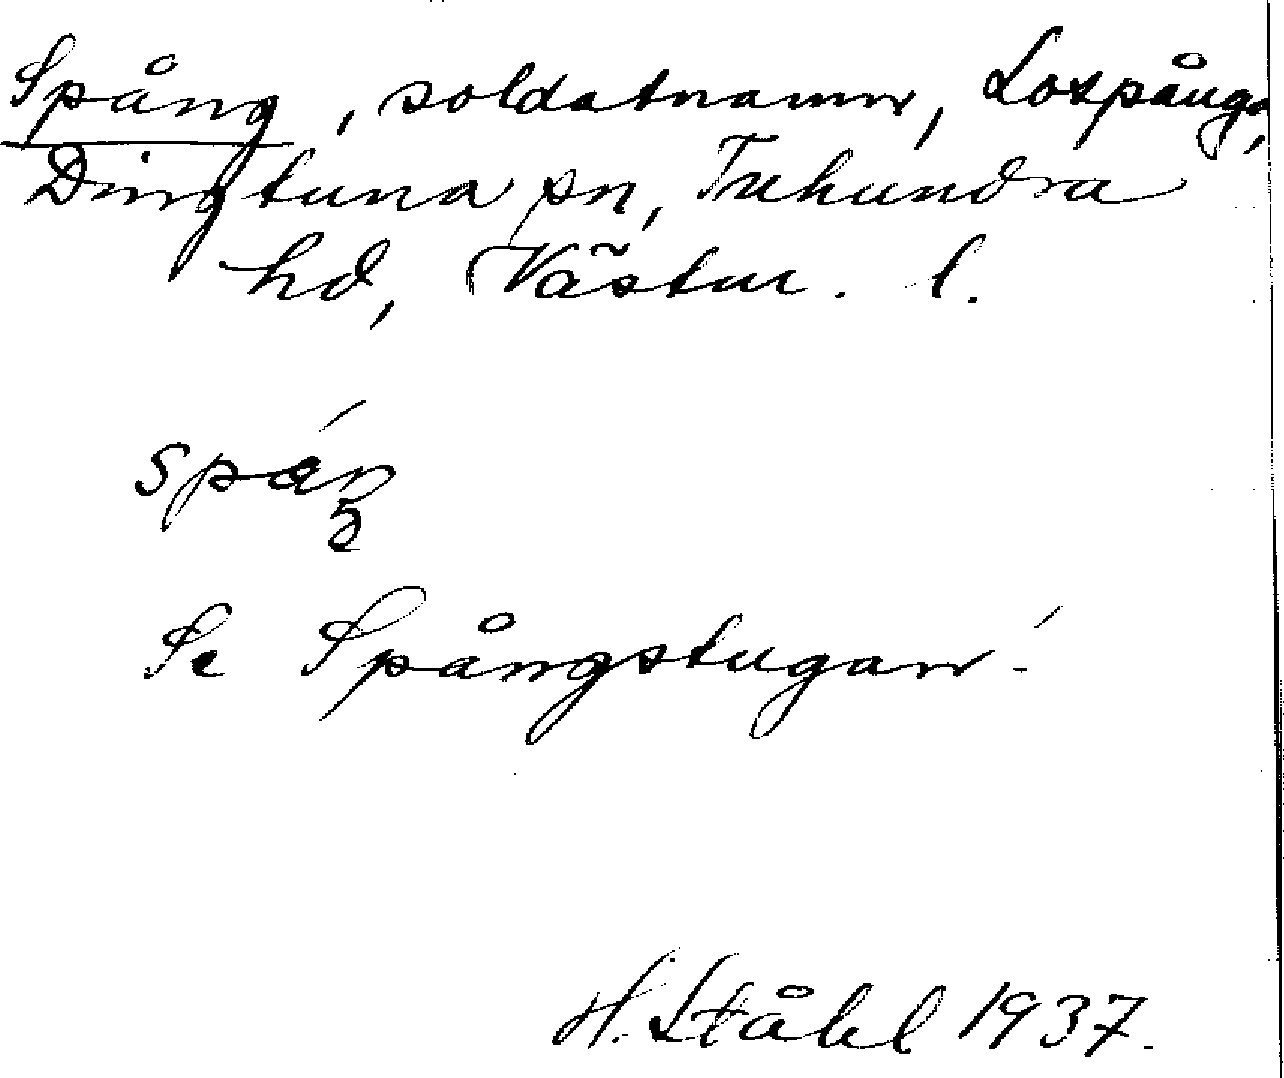 Spång, soldatnamn, Lospånga,
Dingtuna sn, Tuhundra
hd, Västm. l.
spáŋ
Se Spångstugan.
H. Ståhl 1937.